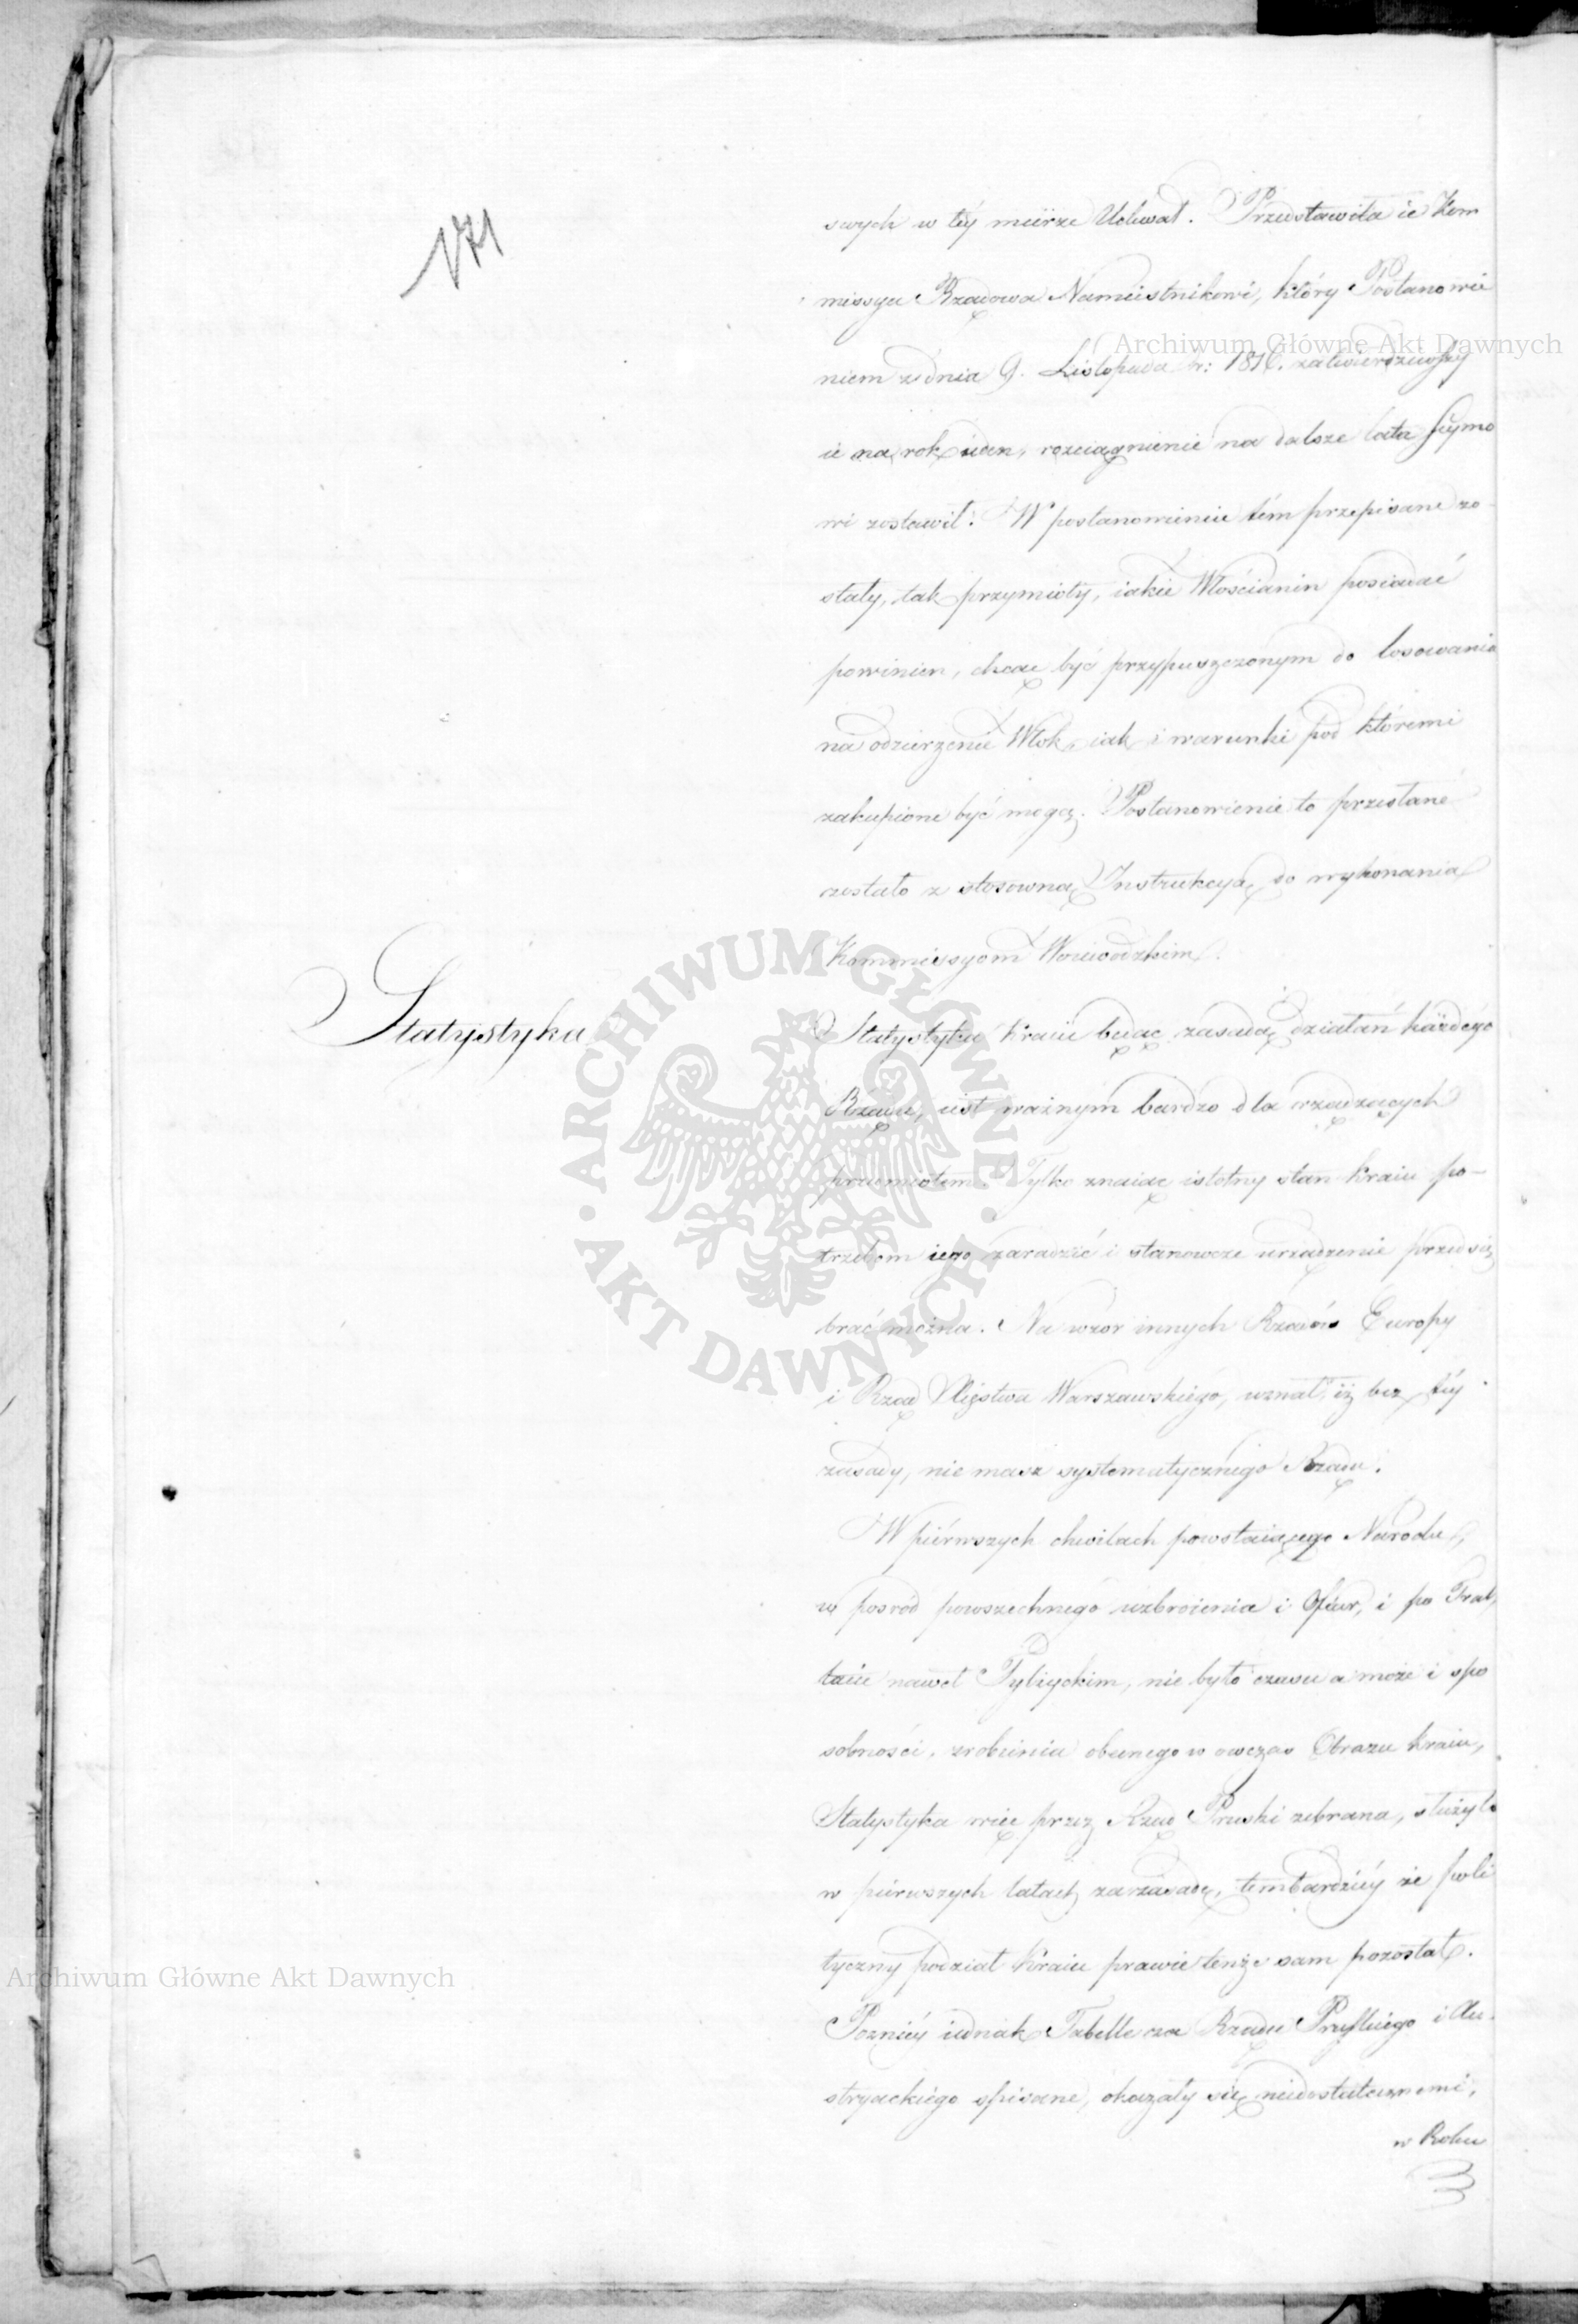 171
swych w téy mierze Uchwał. Przedstawiła ie Kom
missya Rządowa Namiestnikowi, który Postanowie
niem z dnia 9. Listopada r: 1816. zatwierdziwszy
ie na rok ieden, rozciągnienie na dalsze lata Seymo
wi zostawił. W postanowieniu tém przepisane zo
stały, tak przymioty, iakie Włościanin posiadać
powinien, chcąc być przypuszczonym do losowania
na odzierżenie Włok, iak i warunki pod któremi
zakupione być mogą. Postanowienie to przesłane
zostało z stosowną Instrukcyą do wykonania
Kommissyom Woiewodzkim.
Statystyka
Statystyka kraiu będąc zasadą działań każdego
Rządu, iest ważnym bardzo dla rządzących
przedmiotem. Tylko znaiąc istotny stan kraiu po-
trzebom iego zaradzić i stanowcze urządzenie przedsię
brać można. Na wzór innych Rządów Europy
i Rząd Xięstwa Warszawskiego, uznał, iż bez téy
zasady, nie masz systematycznego Rządu.
W piérwszych chwilach powstaiącego Narodu,
w pośród powszechnego uzbroienia i Ofiar, i po Trak
tacie nawet Tylżyckim, nie było czasu a może i spo
sobności, zrobienia obecnego w owczas Obrazu kraiu,
Statystyka więc przez Rząd Pruski zebrana, służyła
w piérwszych latach za zasadę, tembardziéy że poli
tyczny podział Kraiu prawie tenże sam pozostał.
Poźniéy iednak Tabelle za Rządu Pruskiego i Au-
stryackiego spisane, okazały się niedostatecznemi,
w Roku
Archiwum Główne Akt Dawnych
ARCHIWUM GŁÓWNE · AKT DAWNYCH ·
Archiwum Główne Akt Dawnych